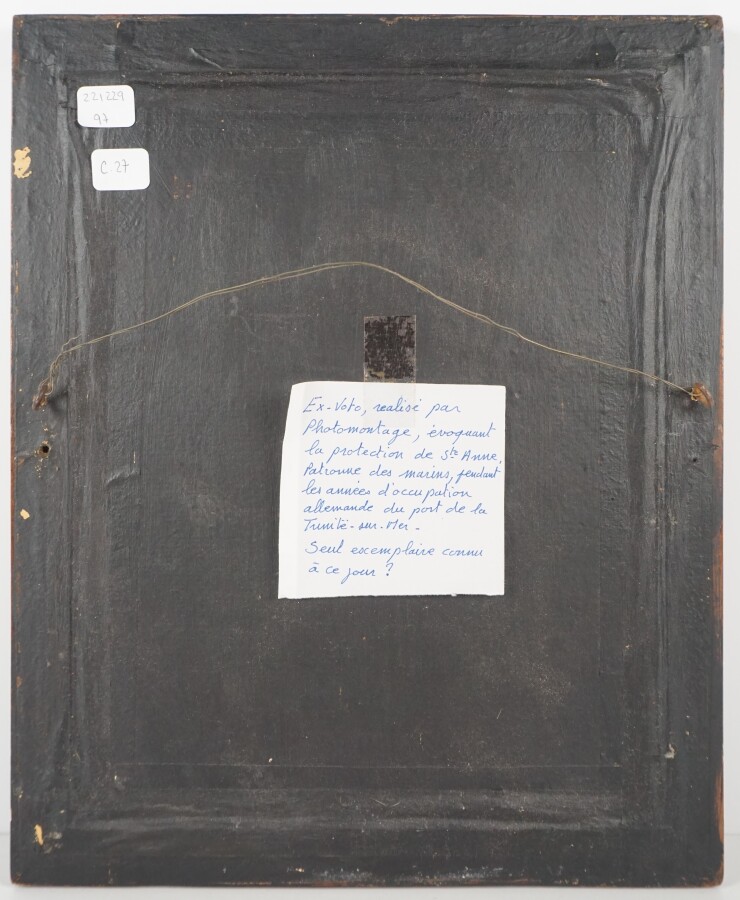 221229
97
C 27
Ex-Voto, realisé par
Photomontage, évoquant
la protection de Ste Anne,
Patronne des marins, pendant
les années d'occupation
allemande du port de la
Trinité-sur-Mer-
Seul excemplaire connu
à ce jour ?